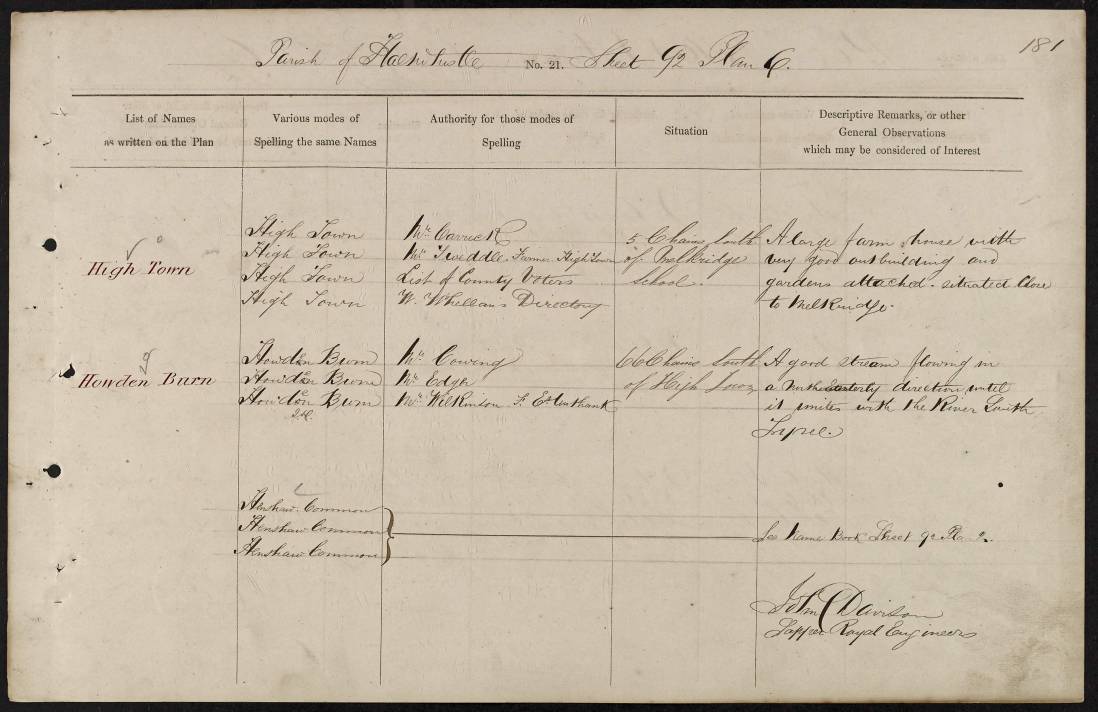 181
Parish of Haltwhistle No. 21. Sheet 92 Plan 6.
List of Names
as written on the Plan
Various modes of
Spelling the same Names
Authority for those modes of
Spelling
Situation
Descriptive Remarks, or other
General Observations
which may be considered of Interest
High Town
High Town
High Town
High Town
High Town
Mr. Carrick
Mr. Tweddle. Farmer High Town
List of County Voters
W. Whellans Directory
5 Chains South
of Melkridge
School.
A large farm house with
very good outbuilding and
gardens attached. situated Close
to Melkridge.
Howden Burn
Howden Burn
Howden Burn
Howden Burn
Mr. Cowing
Mr. Edger
Mr. Wilkinson
66 Chains South
of High Town
A good stream flowing in
a North Easterly direction until
it unites with the River South
Tyne.
Henshaw Common
Henshaw Common
Henshaw Common
See Name Book Sheet 92 Pla 2.
John C Davison
Sapper Royal Engineers